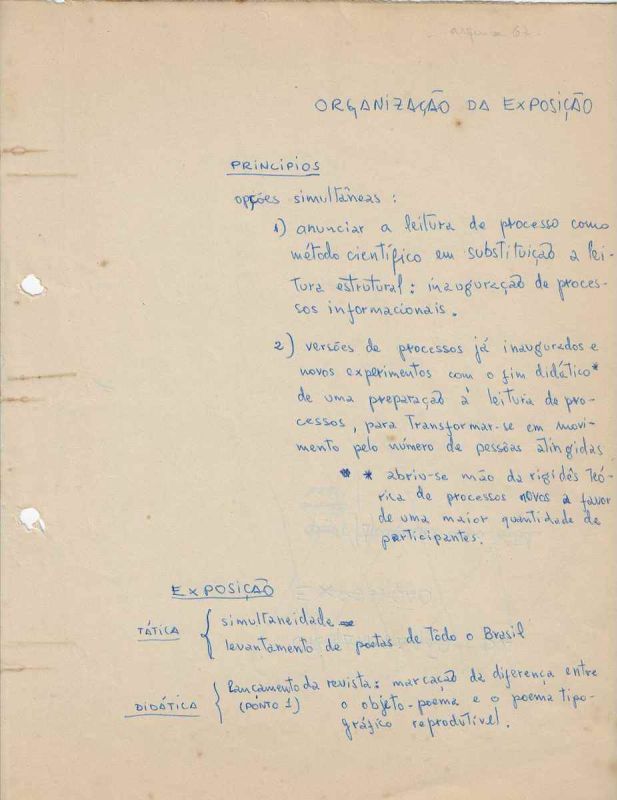 ORGANIZAÇÃO DA EXPOSIÇÃO
PRINCIPIOS
opções simultâneas :
1) anunciar a leitura de processo como
método científico em substituição a lei-
tura estrutural : inauguração de proces-
sos informacionais.
2) versões de processos já inaugurados e
novos experimentos com o fim didático*
de uma preparação à leitura de pro-
cessos, para transformar-se em movi-
mento pelo número de pessôas atingidas
* * abriu-se mão da rigidês teó-
rica de processos novos a favor
de uma maior quantidade de
participantes.
EXPOSIÇÃO
TÁTICA { simultaneidade
levantamento de poetas de todo o Brasil
DIDÁTICA { lançamento da revista : marcação da diferença entre
(PONTO 1) o objeto-poema e o poema tipo-
gráfico reprodutível.